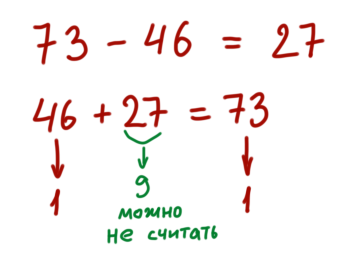 73 - 46 = 27
46 + 27 = 73
1 9 1
можно
не считать